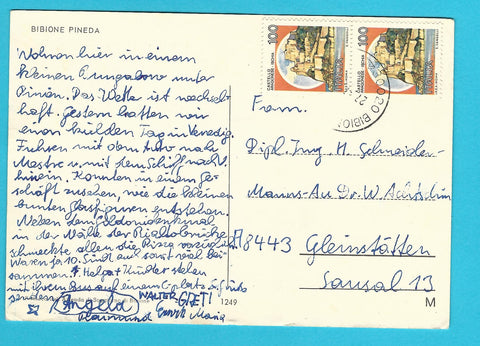 BIBIONE PINEDA
Wohnen hier in einem
kleinen Bungalow unter
Pinien. Das Wetter ist wechsel-
haft. Gestern hatten wir
einen kühlen Tag in Venedig.
Fuhren mit dem Auto nach
Mestre u. mit dem Schiff nach V.
hinein. Konnten in einem Ge-
schäft zusehen, wie die kleinen
bunten Glasfiguren entstehen.
Neben dem Goldonidenkmal
in der Nähe der Rialtobrücke
schmeckte allen die Pizza vorzüglich.
Waren ja 10. Sind auf sonst viel bei-
sammen. Helga + Kinder stehen
mit ihrem Bus auf einem C-platz.
senden
Angela
Raimund
WALTER GRETI
Erich Maria
1249
100
CASTELLO
ARAGONESE
ISCHIA
100
CASTELLO
ARAGONESE
ISCHIA
30020 BIBIONE
Fam.
Dipl. Ing. H. Schneider-
Manns-Au Dr. W.
A 8443 Gleinstätten
Sausal 13
M